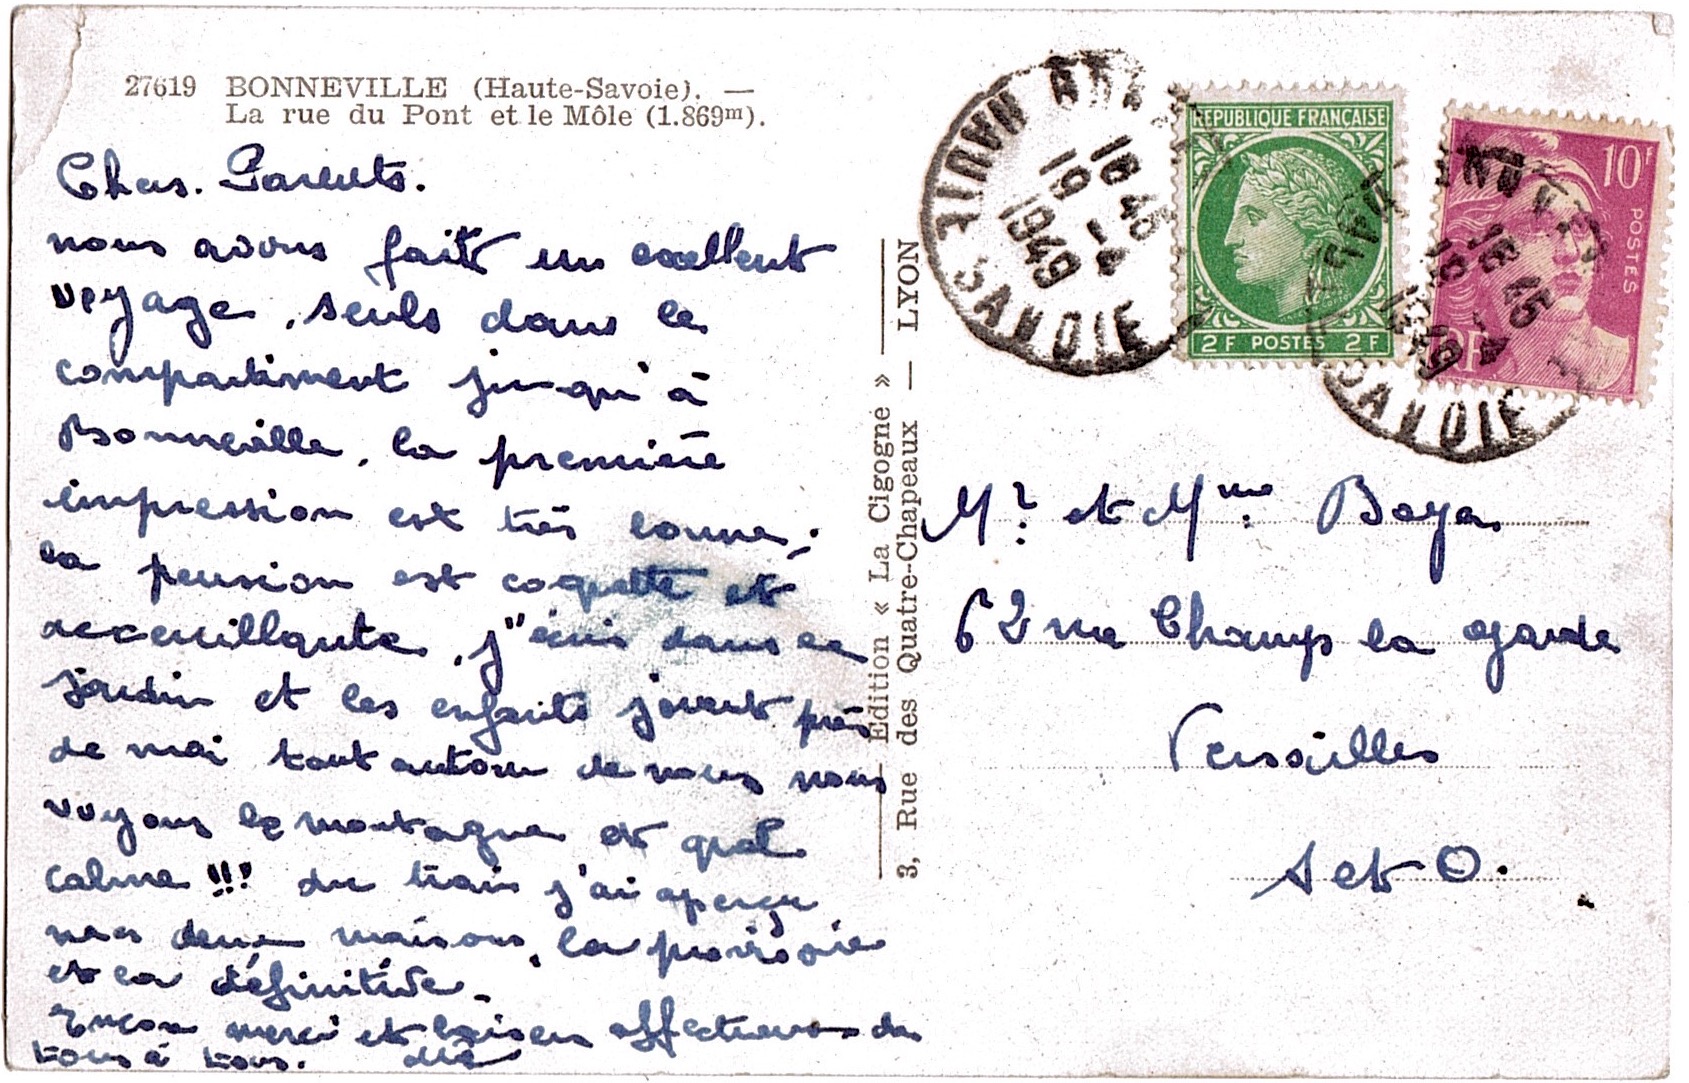 27619 BONNEVILLE (Haute-Savoie). —
La rue du Pont et le Môle (1.869m).
Chers. Parents.
nous avons fait un excellent
voyage, seuls dans le
compartiment jusqu'à
Bonneville, la première
impression est très bonne,
la pension est coquette et
acceuillante, j'écris dans le
jardin et les enfants jouent près
de moi tout autour de nous nous
voyons la montagne et quel
calme !!! du train j'ai aperçu
nos deux maisons, la provisoire
et la définitive.
Encore merci et baisers affectueux de
tous à tous.
Edition « La Cigogne »
3, Rue des Quatre-Chapeaux — LYON
HAUTE SAVOIE
16 45
19 - 4
1949
REPUBLIQUE FRANÇAISE
2 F POSTES 2 F
10F
POSTES
RF
16 45
19 - 4
1949
SAVOIE
Mr. et Mme Boyer
62 rue Champ la garde
Versailles
S et O.